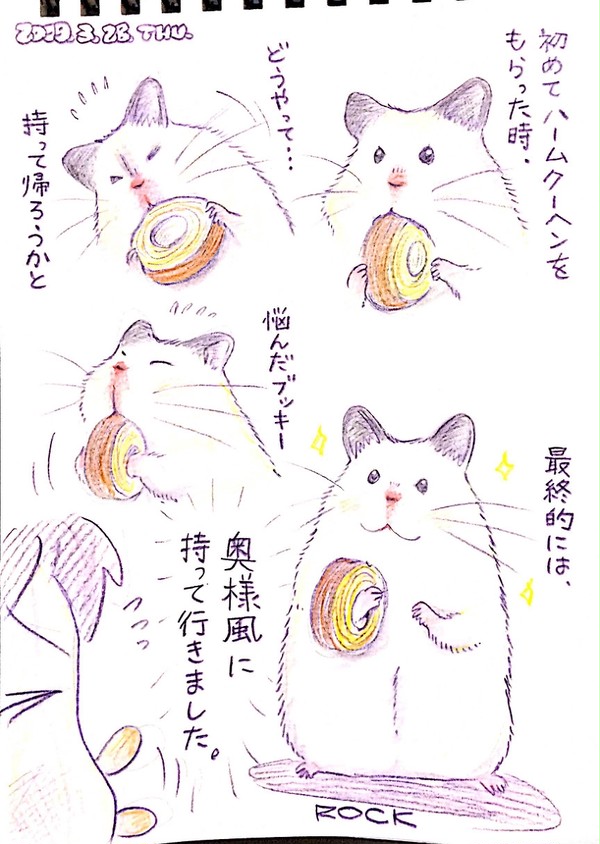 2019.3.28.THU.
初めてハームクーヘンを
もらった時、
どうやって…
持って帰ろうかと
悩んだブッキー
最終的には、
奥様風に
持って行きました。
ROCK